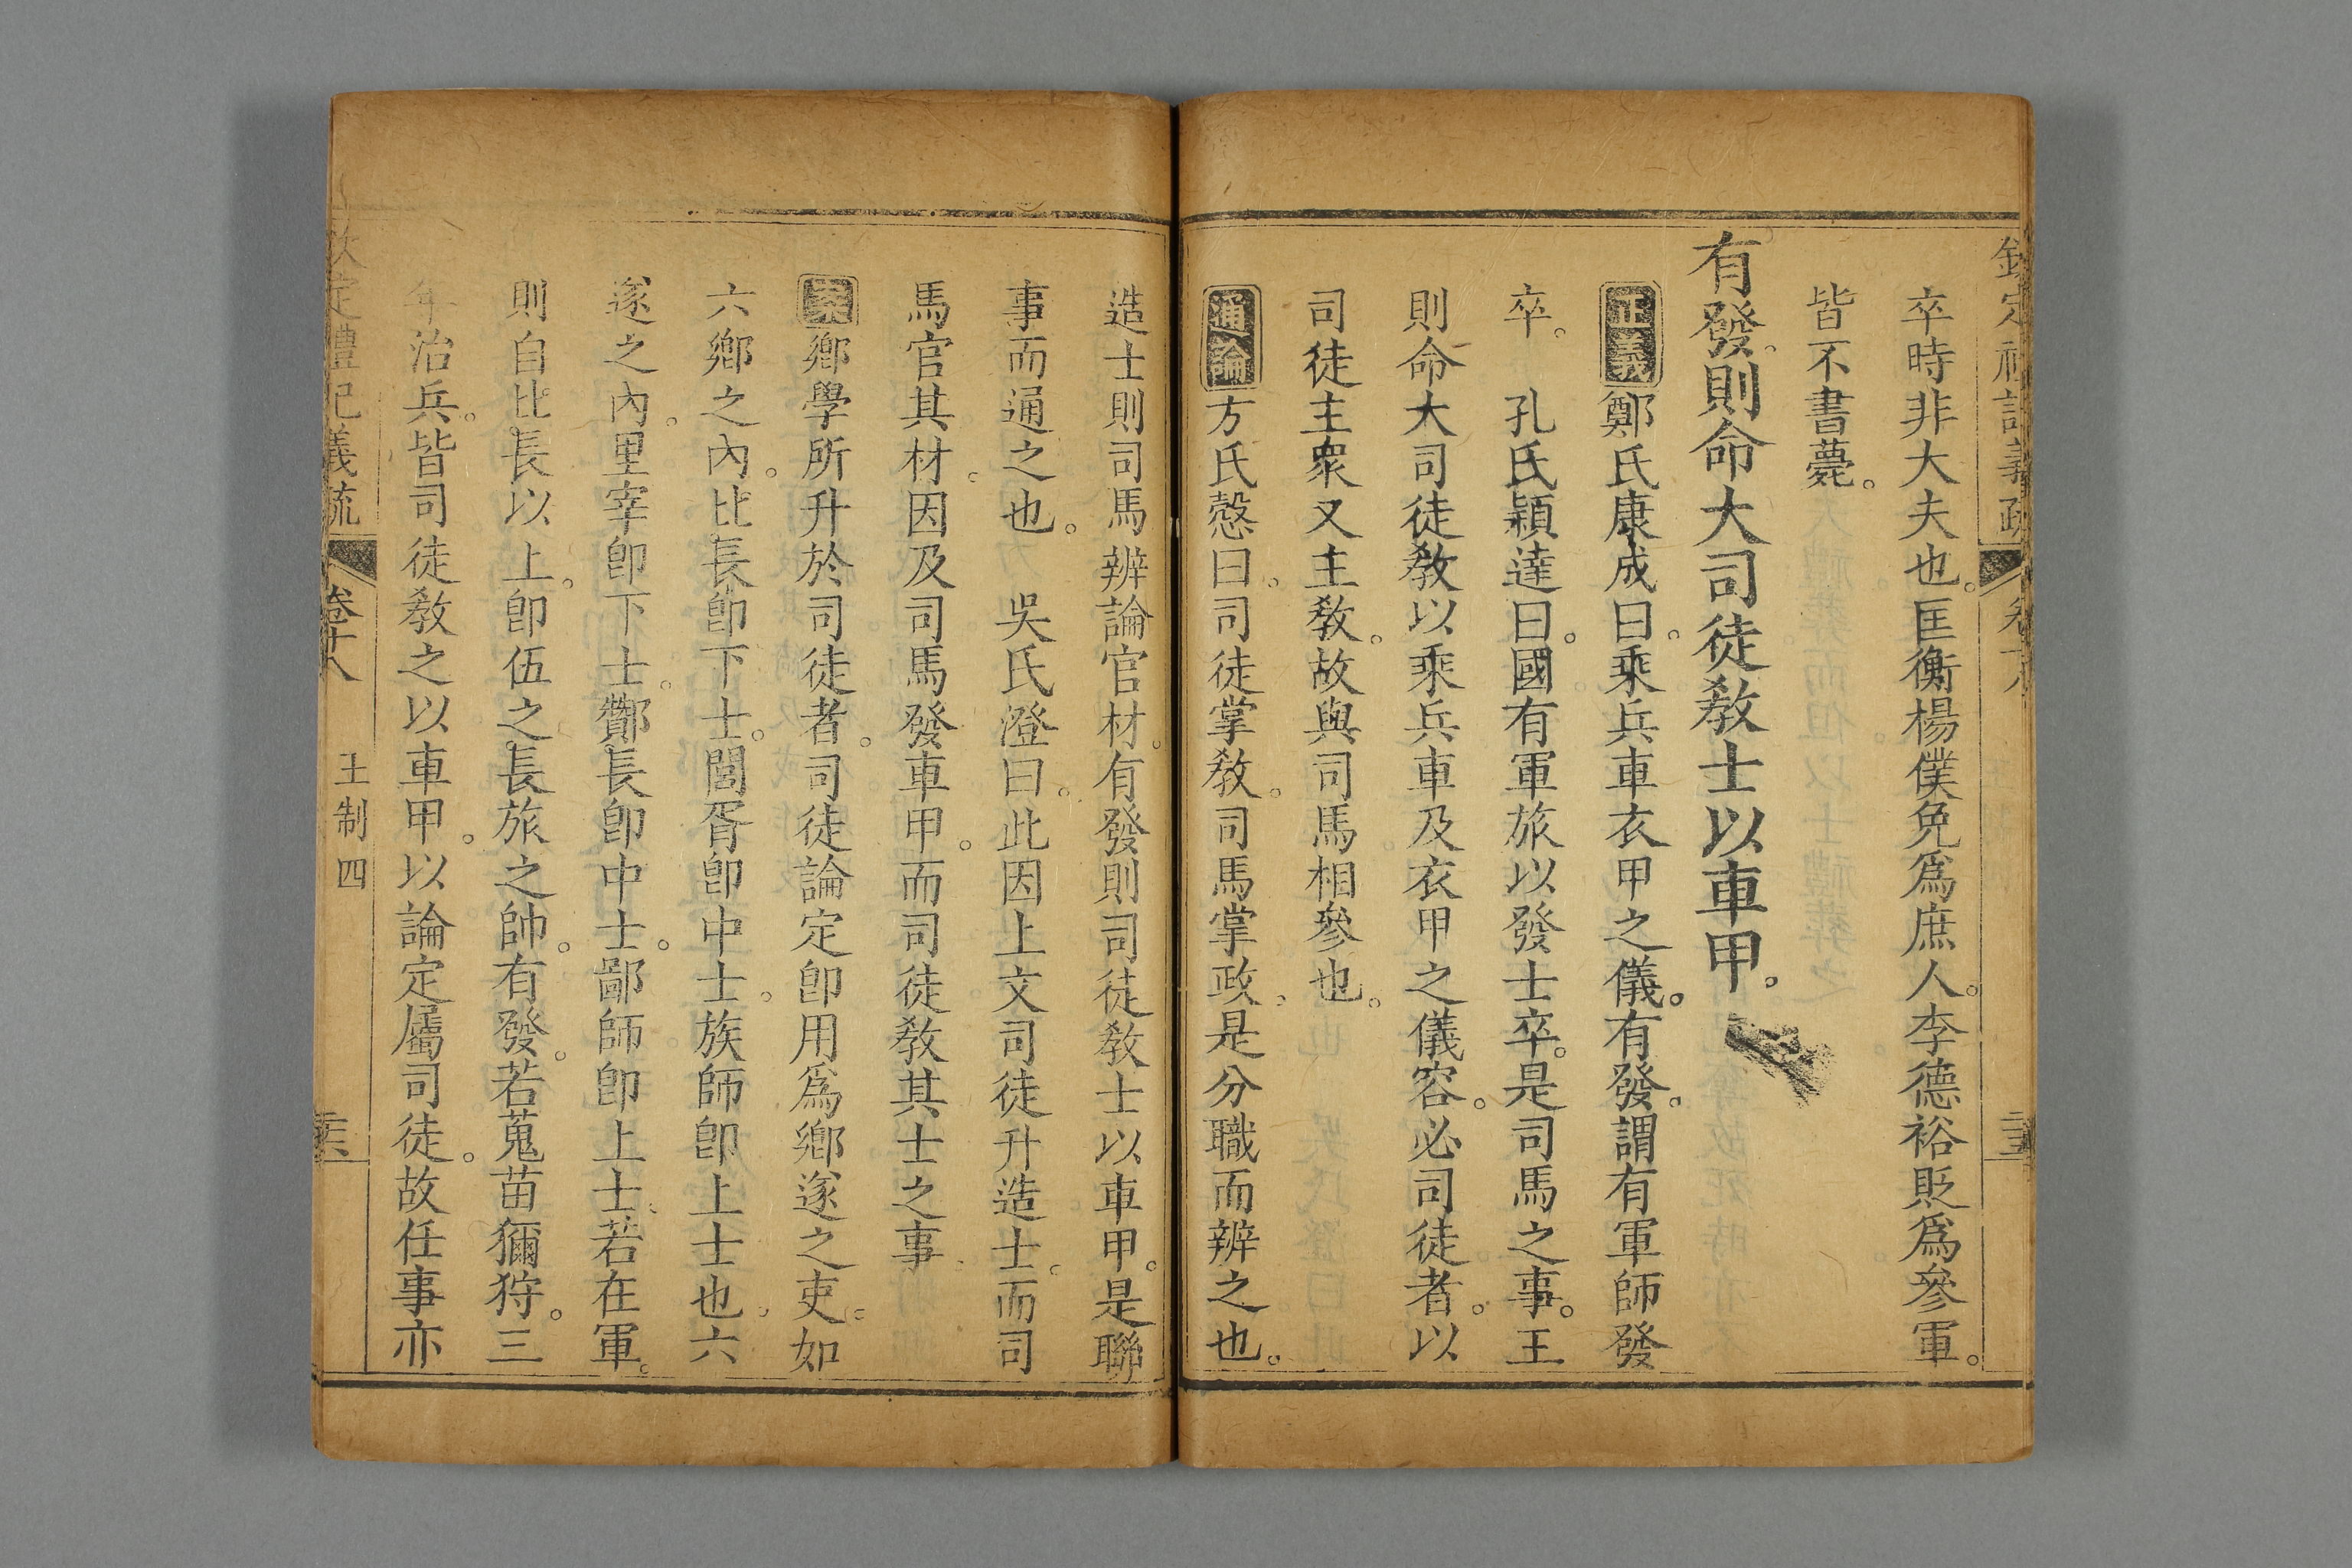 欽定禮記義疏 卷十八
卒時非大夫也。匡衡楊僕免爲庶人。李德裕貶爲參軍。
皆不書薨。
有發。則命大司徒敎士以車甲。
正義鄭氏康成曰。乘兵車衣甲之儀。有發。謂有軍師發
卒。 孔氏穎達曰。國有軍旅以發士卒。是司馬之事。王
則命大司徒敎以乘兵車及衣甲之儀容。必司徒者。以
司徒主衆又主敎。故與司馬相參也。
通論方氏慤曰。司徒掌敎。司馬掌政。是分職而辨之也。
造士則司馬辨論官材。有發則司徒敎士以車甲。是聯
事而通之也。 吳氏澄曰。此因上文司徒升造士。而司
馬官其材。因及司馬發車甲。而司徒敎其士之事。
案鄉學所升於司徒者。司徒論定卽用爲鄉遂之吏。如
六鄉之內。比長卽下士。閭胥卽中士。族師卽上士也。六
遂之內。里宰卽下士。酇長卽中士。鄙師卽上士。若在軍。
則自比長以上。卽伍之長旅之帥。有發。若蒐苗獮狩。三
年治兵。皆司徒敎之以車甲。以論定屬司徒。故任事亦
欽定禮記義疏 卷十八 王制四